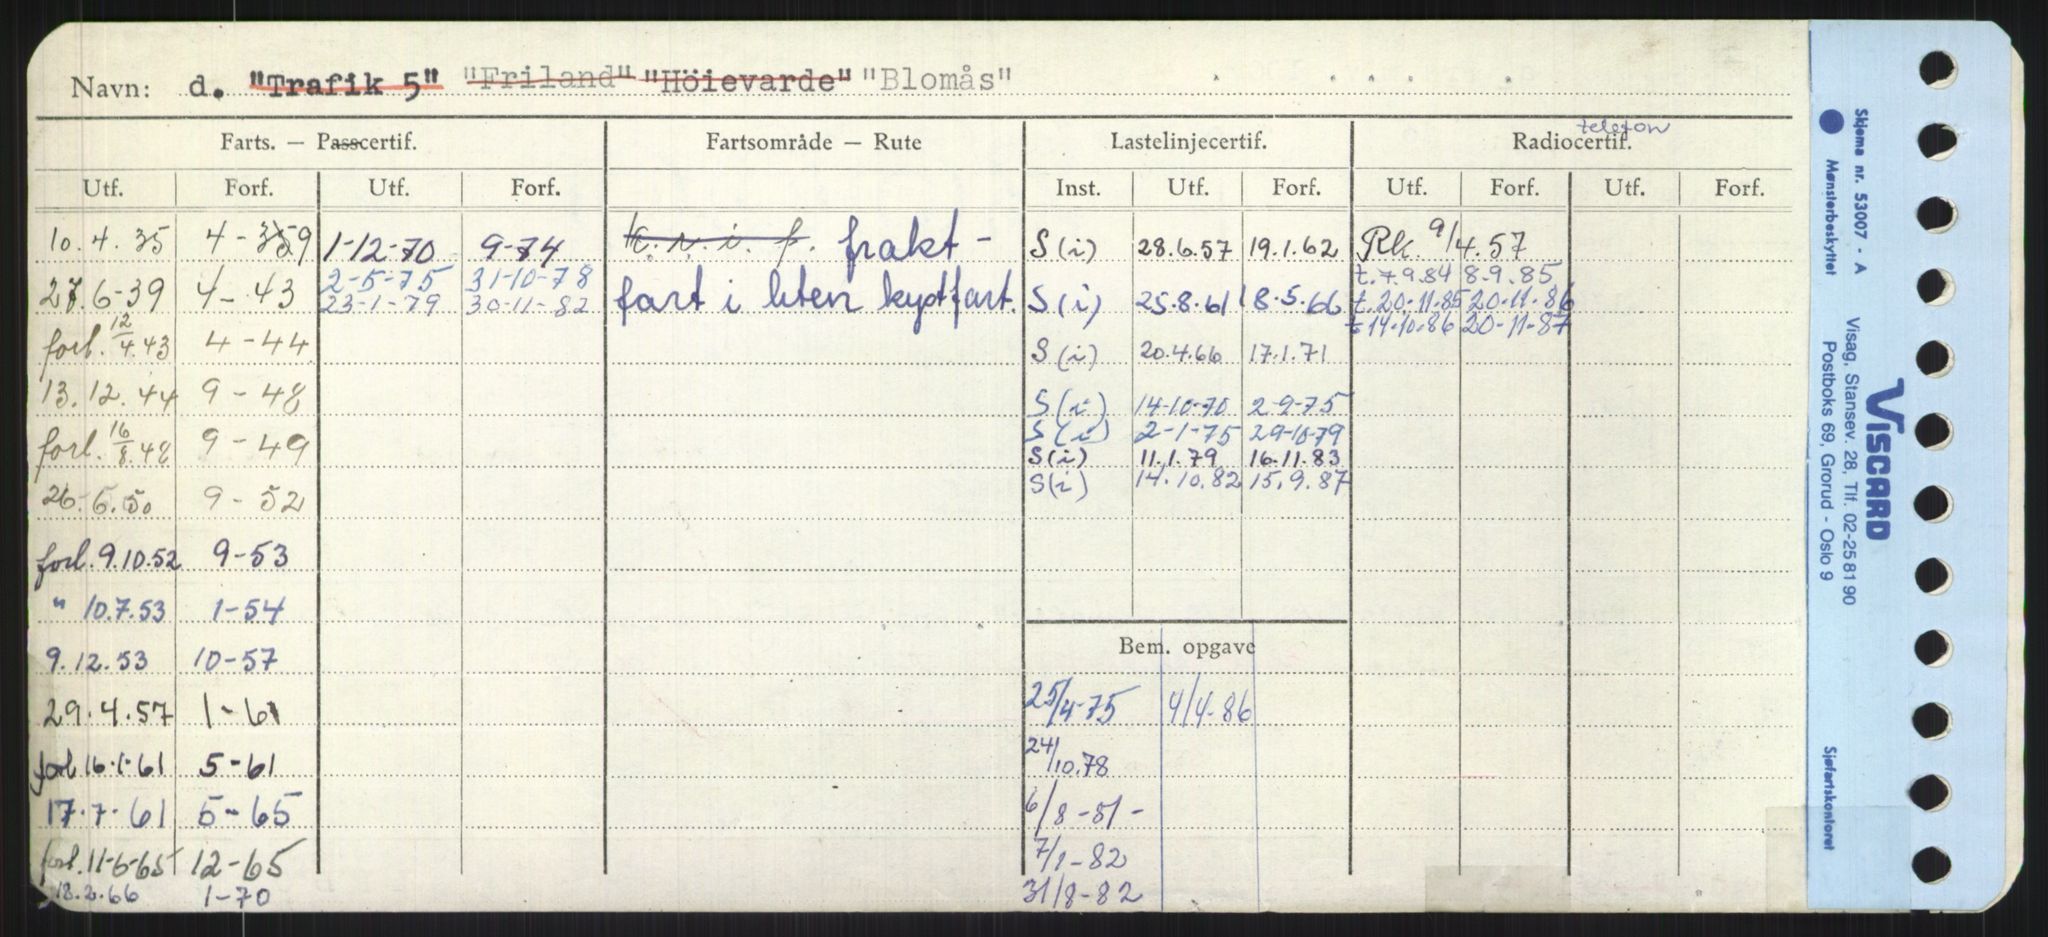 Navn: d. "Trafik 5" "Friland" "Höievarde" "Blomås"
Farts. — Passcertif. Fartsområde — Rute Lastelinjecertif. Radiocertif. telefon
Utf. Forf. Utf. Forf. Inst. Utf. Forf. Utf. Forf. Utf. Forf.
10.4.35 4-359 1-12-70 9-74 K.r.i.f. frakt- S(i) 28.6.57 19.1.62 Rk. 9/4.57
2-5-75 31-10-78 t.7.9.84 8-9.85
27.6-39 4-43 23-1-79 30-11-82 fart i liten kystfart. S(i) 25.8.61 18.5.66 t.20.11.85 20-11-86
t 14-10-86 20-11-87
forl. 12/4.43 4-44 S(i) 20.4.66 17.1.71
13.12.44 9-48 S(i) 14-10-70 2-9-75
forl. 16/8.48 9-49 S(i) 2-1-75 29-10-79
S(i) 11.1.79 16.11.83
26.6.50 9-52 S(i) 14.10.82 15.9.87
forl. 9.10.52 9-53
" 10.7.53 1-54
9.12.53 10-57 Bem. opgave
29.4.57 1-61 25/4-75 4/4-86
forl 16.1.61 5-61 24/10.78
17.7.61 5-65 6/8-81-
forl. 11-6-65 12-65 7/1-82
18.2.66 1-70 31/8-82
Skjema nr. 53007 - A
Mønsterbeskyttet
VISCARD
Visag, Stansev. 28, Tlf. 02-25 81 90
Postboks 69, Grorud - Oslo 9
Sjøfartskontoret